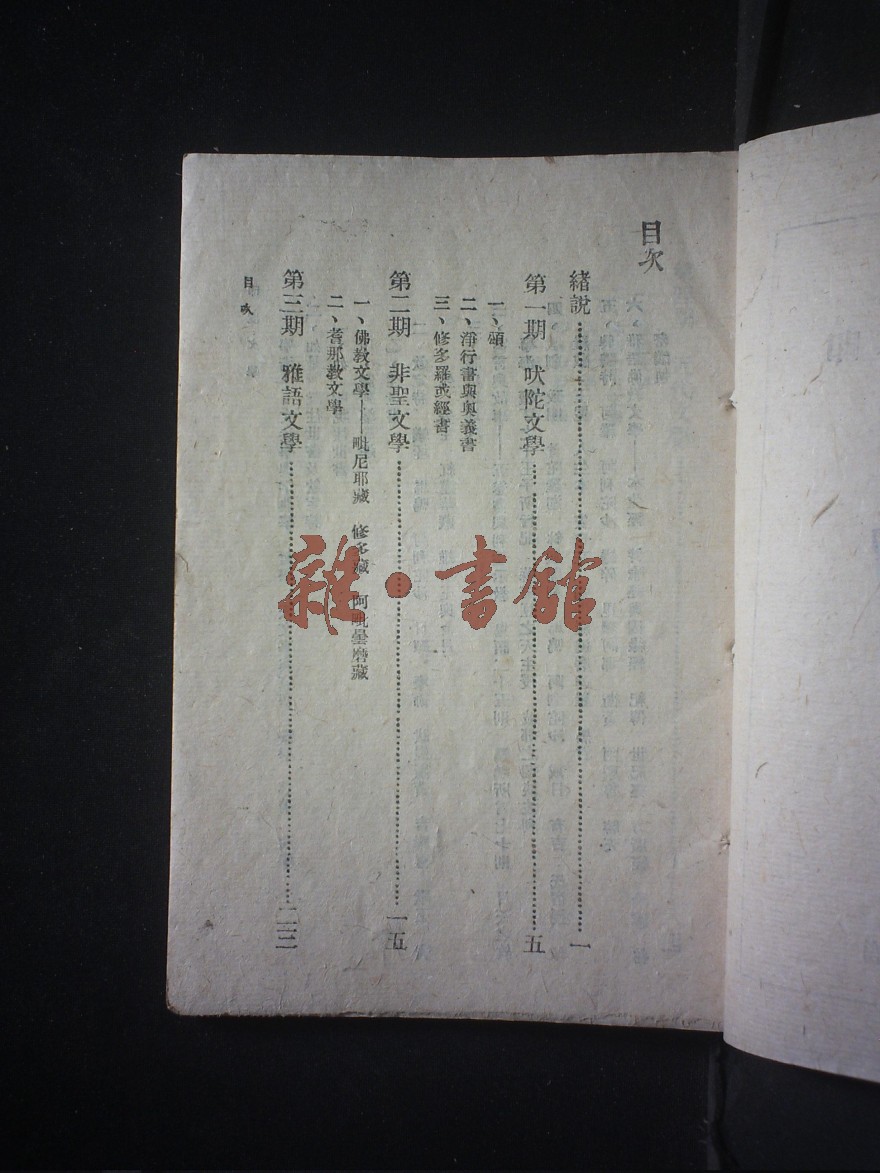 目次
緒說……一
第一期　吠陀文學……五
一、頌
二、淨行書與奧義書
三、修多羅或經書
第二期　非聖文學……一五
一、佛教文學——毗尼耶藏　修多藏　阿毗曇磨藏
二、耆那教文學
第三期　雅語文學……二三
目次
一
雜·書館